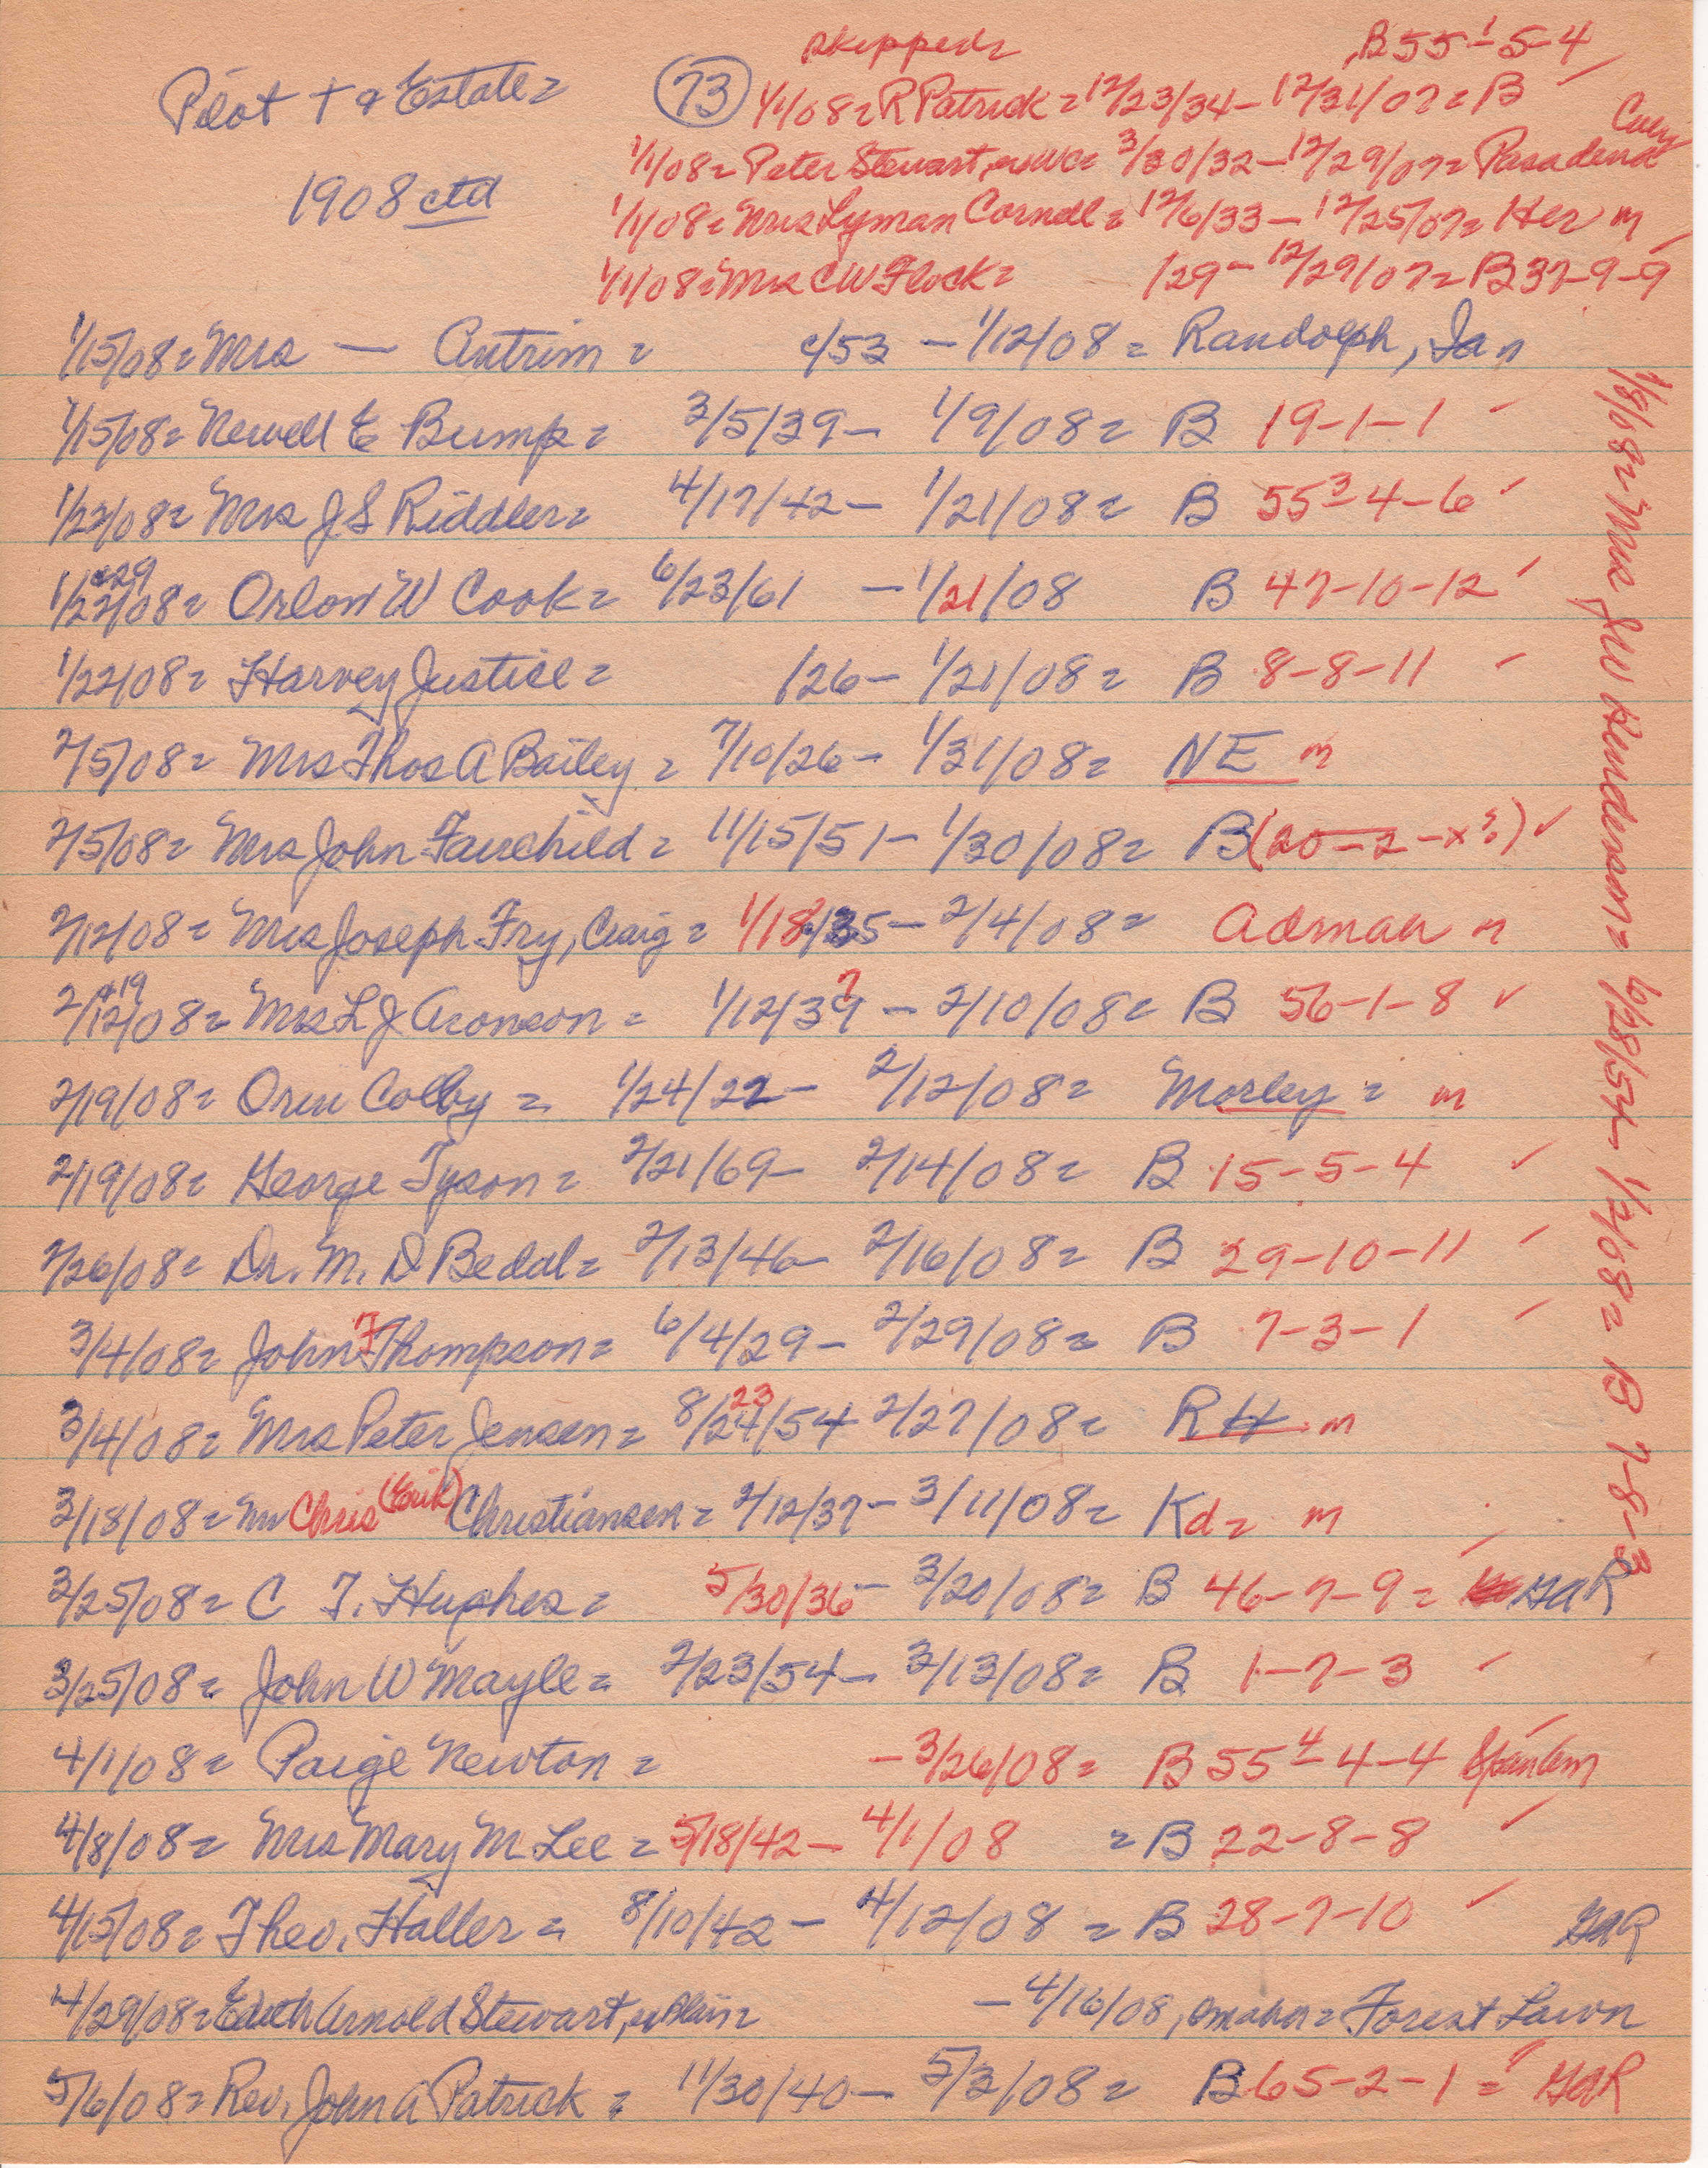 skipped= B 55¹-5-4
Pilot + & Estate= (73) 1/1/08= R Patrick = 12/23/34 - 12/31/07= B ✓
1/1/08= Peter Stewart, = 3/30/32 - 12/29/07= Pasadena
1908 ctd 1/1/08= Mrs Lyman Cornell= 12/6/33 - 12/25/07= Her m
1/1/08= Mrs CW Flock= /29 - 12/29/07= B 37-9-9 ✓
1/15/08= Mrs — Antrim= c/53 - 1/12/08= Randolph, Ia n
1/15/08= Newell E Bump= 3/5/39 - 1/9/08= B 19-1-1 ✓
1/22/08= Mrs J S Riddler= 4/17/42 - 1/21/08= B 55³-4-6 ✓
1/22/08= &29 Orlon W Cook= 6/23/61 - 1/21/08 B 47-10-12 ✓
1/22/08= Harvey Justice= /26 - 1/21/08= B 8-8-11 ✓
2/5/08= Mrs Thos A Bailey= 7/10/26 - 1/31/08= NE m
2/5/08= Mrs John Fairchild= 11/15/51 - 1/30/08= B (20-2-x?) ✓
2/12/08= Mrs Joseph Fry, Craig= 1/18/35 - 2/4/08= Admah n
2/12/08= &19 Mrs L J Aronson= 1/12/39 ? - 2/10/08= B 56-1-8 ✓
2/19/08= Oren Colby= 1/24/22 - 2/12/08= Morley= m
2/19/08= George Tyson= 2/21/69 - 2/14/08= B 15-5-4 ✓
2/26/08= Dr. M. D Bedal= 2/13/46 - 2/16/08= B 29-10-11 ✓
3/4/08= John T Thompson= 6/4/29 - 2/29/08= B 7-3-1 ✓
3/4/08= Mrs Peter Jensen= 8/24/54 23 2/27/08= RH m
3/18/08= Chris (Erik) Christiansen= 2/12/37 - 3/11/08= Kd= m
3/25/08= C T. Hughes= 5/30/36 - 3/20/08= B 46-7-9= ✓ GAR
3/25/08= John W Mayle= 2/23/54 - 3/13/08= B 1-7-3 ✓
4/1/08= Paige Newton= - 3/26/08= B 55⁴-4-4 ✓ SpanAm
4/8/08= Mrs Mary M Lee= 5/18/42 - 4/1/08 = B 22-8-8 ✓
4/15/08= Theo. Haller= 8/10/42 - 4/12/08 = B 28-7-10 ✓ GAR
4/29/08= Edith Arnold Stewart, = - 4/16/08, Omaha= Forest Lawn
5/6/08= Rev. John A Patrick= 11/30/40 - 5/3/08= B 65-2-1= ✓ GAR
1/8/08= Mrs JW Henderson= 6/28/54 - 1/2/08= B 7-8-3